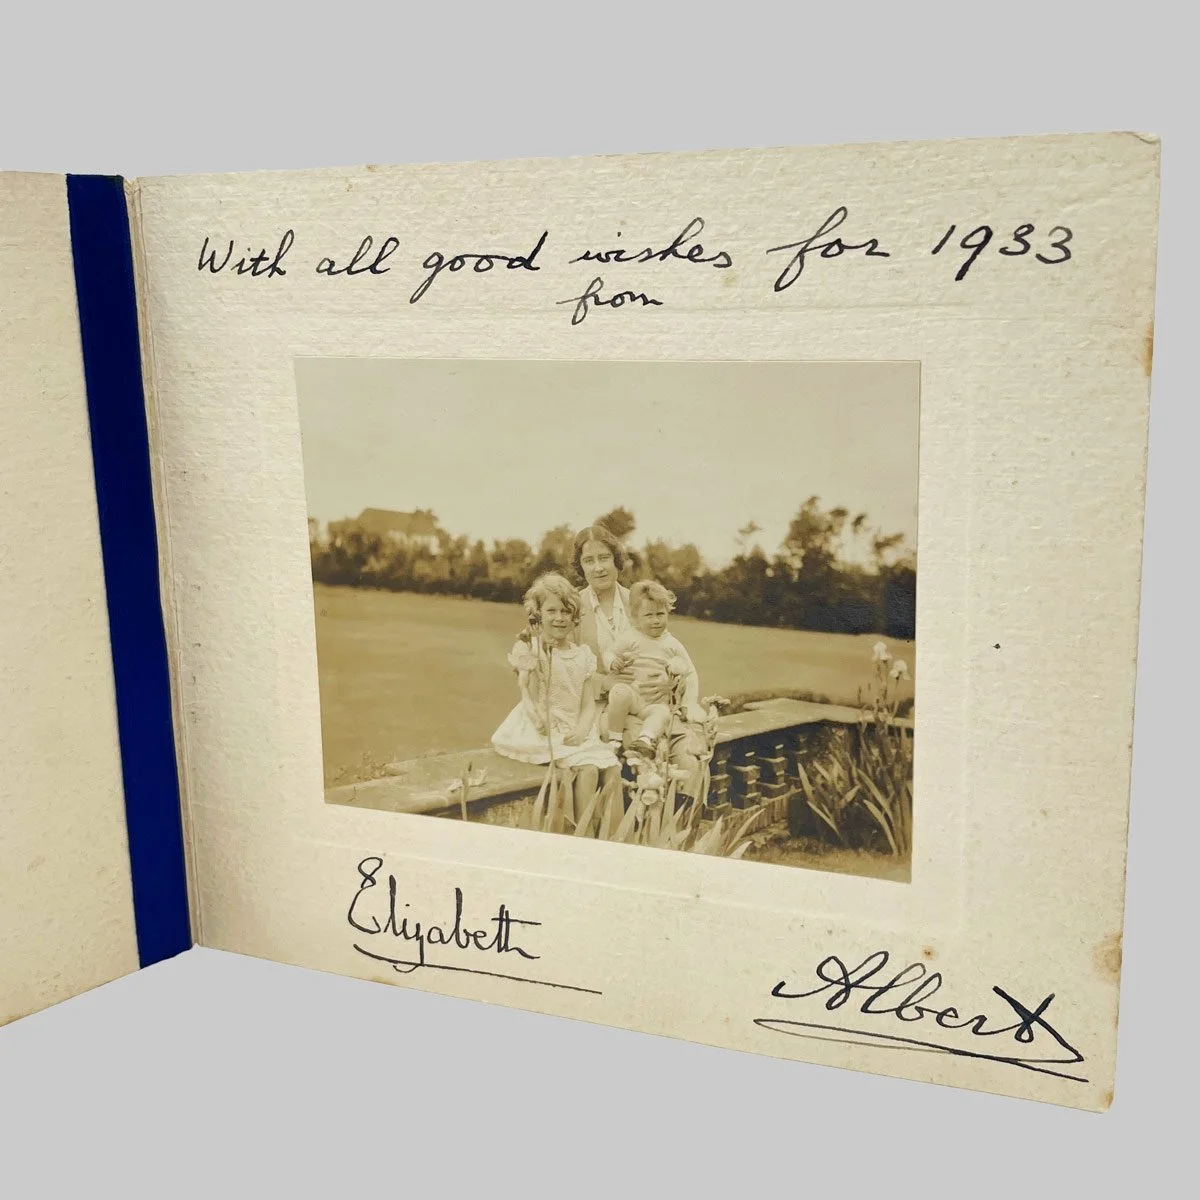 With all good wishes for 1933
from
Elizabeth
Albert